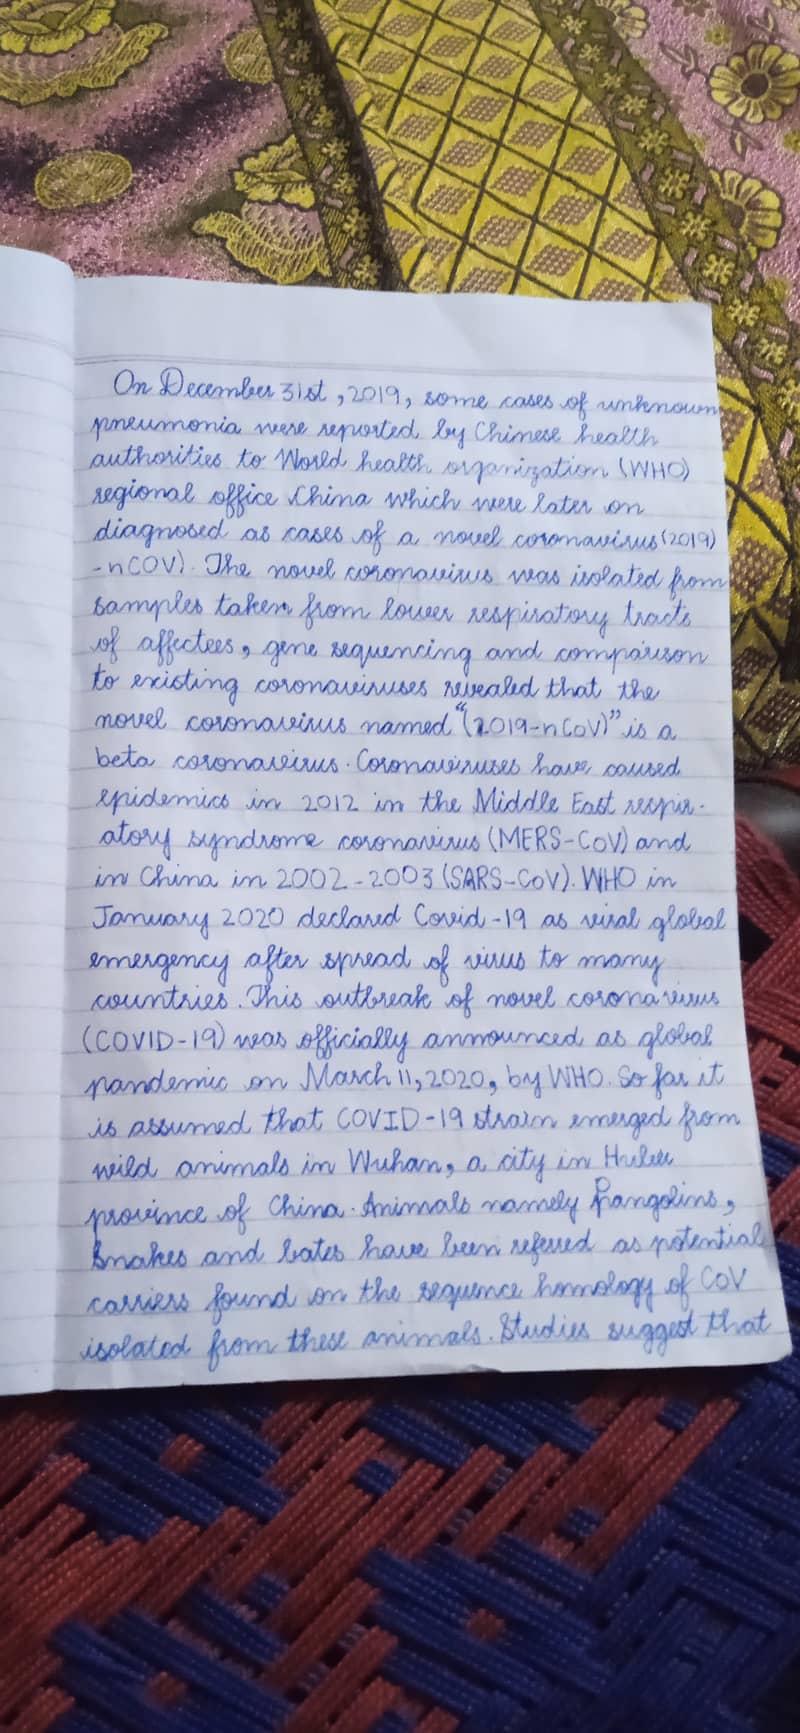 On December 31st, 2019, some cases of unknown
pneumonia were reported by Chinese health
authorities to World health organization (WHO)
regional office China which were later on
diagnosed as cases of a novel coronavirus (2019)
-nCOV). The novel coronavirus was isolated from
samples taken from lower respiratory tracts
of affectees, gene sequencing and comparison
to existing coronaviruses revealed that the
novel coronavirus named "(2019-nCoV)" is a
beta coronavirus. Coronaviruses have caused
epidemics in 2012 in the Middle East respir-
atory syndrome coronavirus (MERS-CoV) and
in China in 2002-2003 (SARS-CoV). WHO in
January 2020 declared Covid-19 as viral global
emergency after spread of virus to many
countries. This outbreak of novel corona virus
(COVID-19) was officially announced as global
pandemic on March 11, 2020, by WHO. So far it
is assumed that COVID-19 strain emerged from
wild animals in Wuhan, a city in Hubei
province of China. Animals namely Pangolins,
Snakes and bates have been refered as potential
carriers found on the sequence homology of CoV
isolated from these animals. Studies suggest that